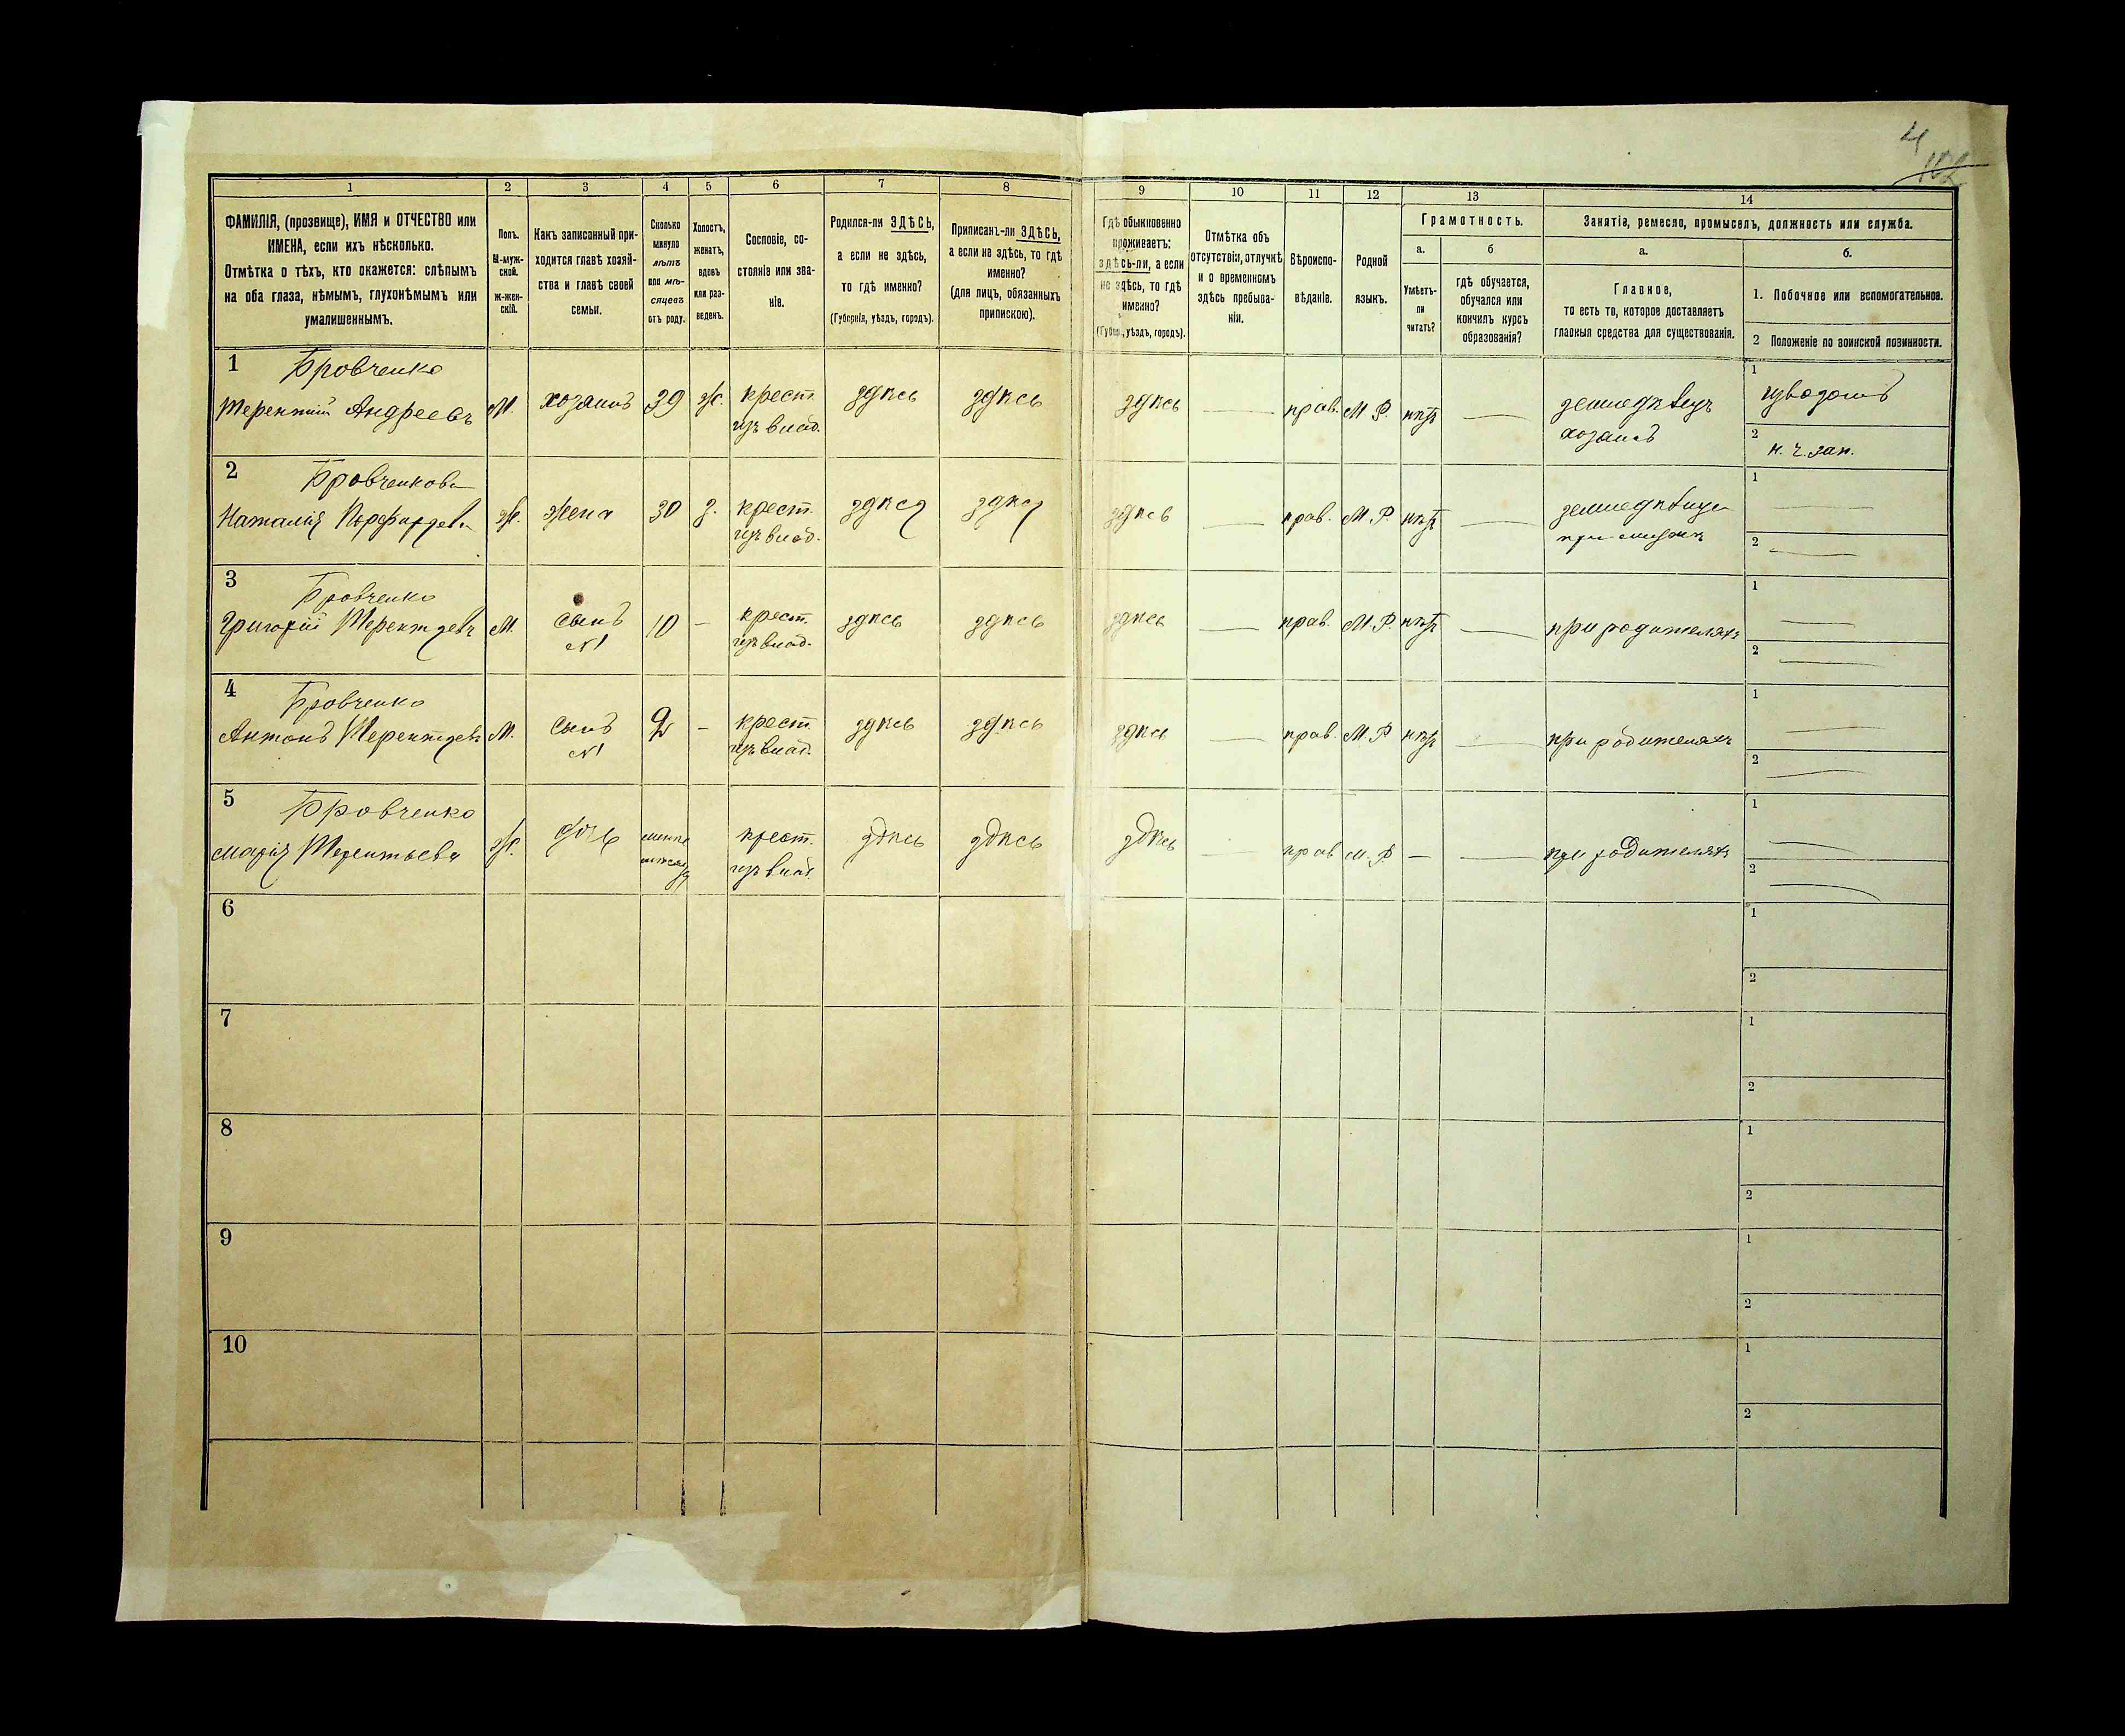 4
102
1
2
3
4
5
6
7
8
9
10
11
12
13
14
ФАМИЛІЯ, (прозвище), ИМЯ и ОТЧЕСТВО или
ИМЕНА, если ихъ нѣсколько.
Отмѣтка о тѣхъ, кто окажется: слѣпымъ
на оба глаза, нѣмымъ, глухонѣмымъ или
умалишеннымъ.
Полъ.
М-муж-
ской.
ж-жен-
скій.
Какъ записанный при-
ходится главѣ хозяй-
ства и главѣ своей
семьи.
Сколько
минуло
лѣтъ
или мѣ-
сяцевъ
отъ роду.
Холостъ,
женатъ,
вдовъ
или раз-
веденъ.
Сословіе, со-
стояніе или зва-
ніе.
Родился-ли ЗДѢСЬ,
а если не здѣсь,
то гдѣ именно?
(Губернія, уѣздъ, городъ).
Приписанъ-ли ЗДѢСЬ,
а если не здѣсь, то гдѣ
именно?
(для лицъ, обязанныхъ
припискою).
Гдѣ обыкновенно
проживаетъ:
здѣсь-ли, а если
не здѣсь, то гдѣ
именно?
(Губер., уѣздъ, городъ).
Отмѣтка объ
отсутствіи, отлучкѣ
и о временномъ
здѣсь пребыва-
ніи.
Вѣроиспо-
вѣданіе.
Родной
языкъ.
Грамотность.
а.
Умѣетъ-
ли
читать?
б
гдѣ обучается,
обучался или
кончилъ курсъ
образованія?
Занятіе, ремесло, промыселъ, должность или служба.
а.
Главное,
то есть то, которое доставляетъ
главныя средства для существованія.
б.
1. Побочное или вспомогательное.
2 Положеніе по воинской повинности.
1 Бровченко
Терентій Андреевъ
М.
хозяинъ
39
ж.
крест.
изъ влад.
здѣсь
здѣсь
здѣсь
прав.
М. Р.
нѣтъ
земледѣлецъ
хозяинъ
1
2
н. ч. зап.
2 Бровченкова
Наталія
ж.
жена
30
з.
крест.
изъ влад.
здѣсь
здѣсь
здѣсь
прав.
М. Р.
нѣтъ
при
1
2
3 Бровченко
Григорій Терентіевъ
М.
сынъ
№1
10
крест.
изъ влад.
здѣсь
здѣсь
здѣсь
прав.
М. Р.
нѣтъ
при родителяхъ
1
2
4 Бровченко
Антонъ Терентіевъ
М.
сынъ
№1
крест.
изъ влад.
здѣсь
здѣсь
здѣсь
прав.
М. Р.
нѣтъ
при родителяхъ
1
2
5 Бровченко
Марія Терентьева
ж.
дочь
крест.
изъ влад.
здѣсь
здѣсь
здѣсь
прав
М. Р.
при родителяхъ
1
2
6
1
2
7
1
2
8
1
2
9
1
2
10
1
2